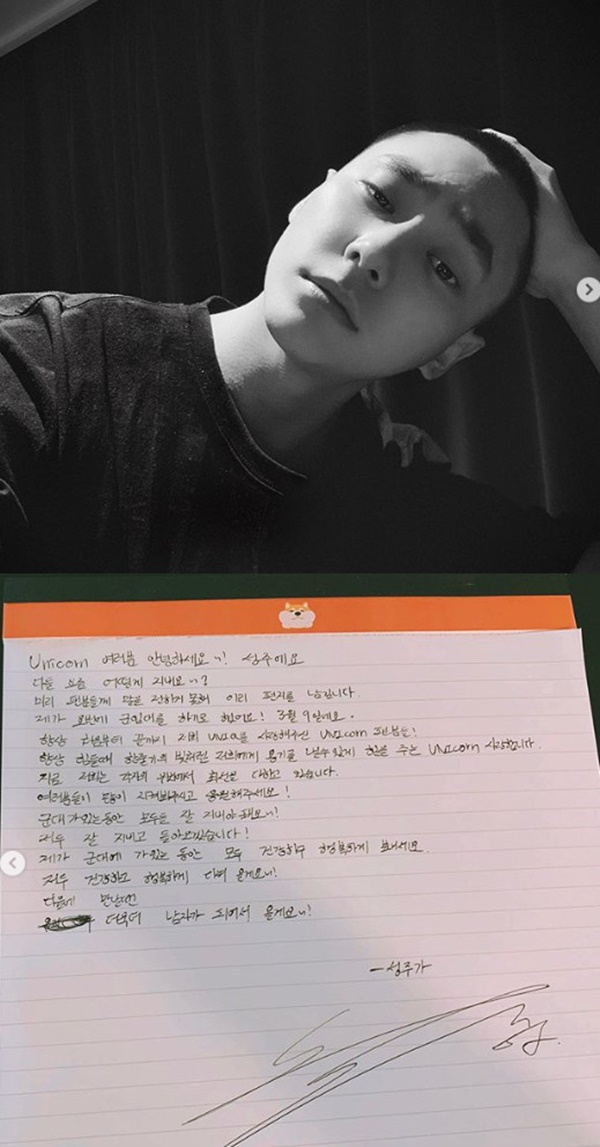 Unicorn 여러분 안녕하세요~! 성주에요
다들 요즘 어떻게 지내요~?
미리 팬분들께 말을 전하지 못해 이리 편지를 남깁니다.
제가 이번에 군입대를 하게 됐어요! 3월 9일에요.
항상 처음부터 끝까지 저희 UNIQ를 사랑해주신 Unicorn 팬분들!
항상 힘들때 한줄기의 빛처럼 저희에게 용기를 낼수있게 힘을 주는 Unicorn 사랑합니다.
지금 저희는 각자의 위치에서 최선을 다하고 있습니다.
여러분들이 많이 지켜봐주시고 응원해주세요!
군대 가있는동안 모두들 잘 지내야 돼요~!
저두 잘 지내고 돌아오겠습니다!
제가 군대에 가있는 동안 모두 건강하구 행복하게 보내세요.
저두 건강하고 행복하게 다녀 올게요~!
다음에 만날땐
더욱더 남자가 되어서 올게요~!
-성주가